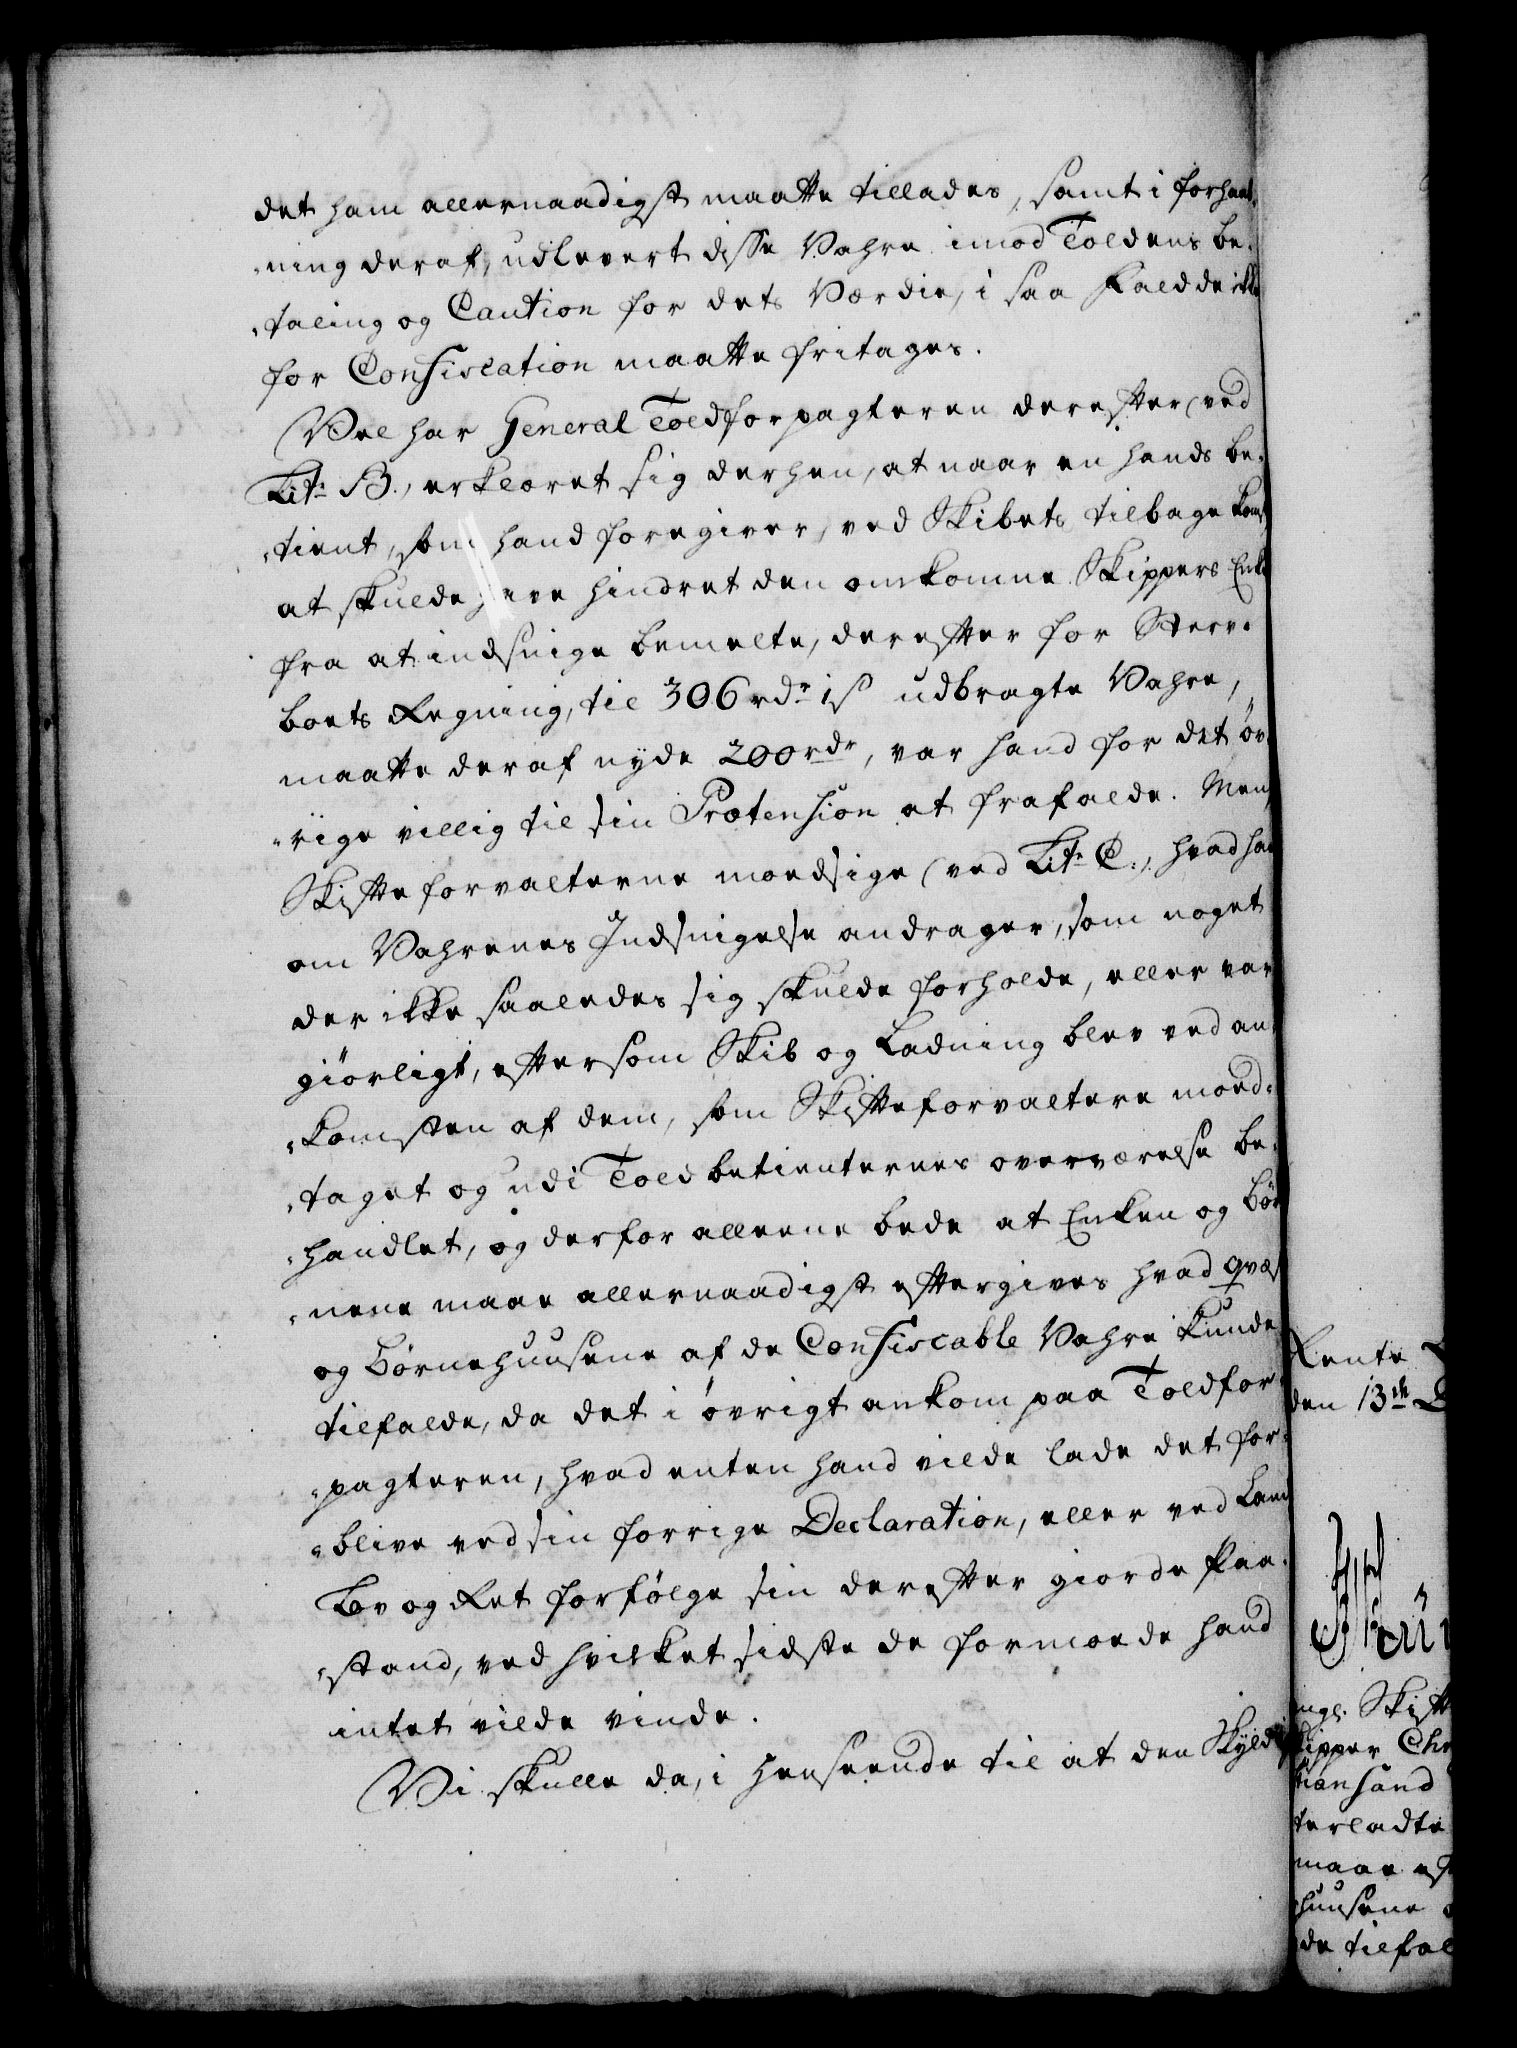 det ham allernaadigst maatte tillades, samt i forhaab-
-ning deraf, udlevert disse Vahre imod Toldens be-
-taling og Caution for dets Værdie, i saa Fald de ikke
for Confiscation maatte fritages.
Vel har General Toldforpagteren derefter (ved
Litr: B., erklæret sig derhen, at naar en hands be-
-tient, som hand foregiver, ved Skibets tilbage komst
at skulde have hindret den omkomne Skippers Enke
fra at indsnige bemelte, derefter for Sterv-
boets Regning, til 306 rdr 1 s udbragte Vahre,
maatte deraf nyde 200 rdr, var hand for det øv-
-rige villig til sin Prætension at frafalde. Men
Skifteforvalterne modsige (ved Litr: C:, hvad hand
om Vahrenes Indsnigelse andrager, som noget
der ikke saaledes sig skulde forholde, eller var
giørligt, eftersom Skib og Ladning blev ved an-
-komsten af dem, som Skifteforvaltere mod-
-taget og udi Toldbetienternes overværelse be-
-handlet, og derfor alleene bede at Enken og Bør-
-nene maae allernaadigst eftergives hvad qvæst
og Børnehuusene af de Confiscable Vahre kunde
tilfalde, da det i øvrigt ankom paa Toldfor-
-pagteren, hvad enten hand vilde lade det for-
-blive ved sin forrige Declaration, eller ved Land
Lov og Ret forfølge sin derefter giorde Paa-
-stand, ved hvilket sidste de formoede hand
intet vilde vinde.
Vi skulle da, i henseende til at den Skyldi
Rente
den 13de
ngl. Skift
kipper Chr
tiansand
terladte
maae eft
huusene
de tilfal